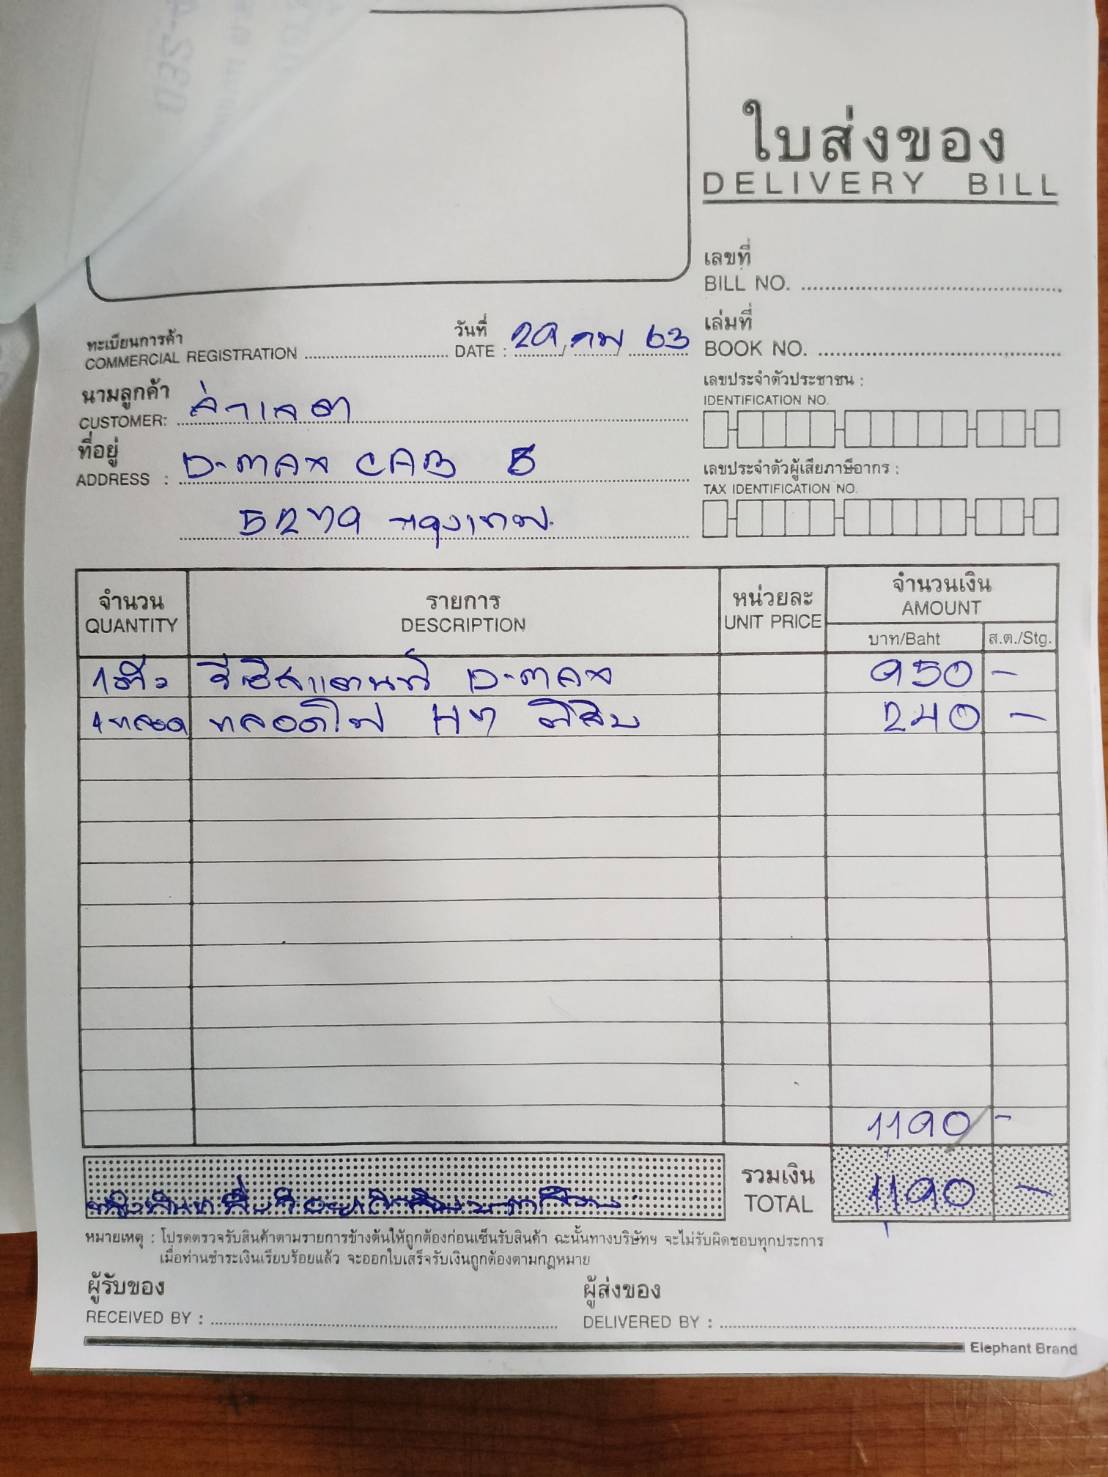 ใบส่งของ
DELIVERY BILL
เลขที่
BILL NO.
ทะเบียนการค้า
COMMERCIAL REGISTRATION
วันที่
DATE : 29 กพ 63
เล่มที่
BOOK NO.
นามลูกค้า
CUSTOMER:
เลขประจำตัวประชาชน :
IDENTIFICATION NO.
ที่อยู่
ADDRESS : D-MAX CAB 5
เลขประจำตัวผู้เสียภาษีอากร :
TAX IDENTIFICATION NO.
กรุงเทพ.
จำนวน
QUANTITY
รายการ
DESCRIPTION
หน่วยละ
UNIT PRICE
จำนวนเงิน
AMOUNT
บาท/Baht ส.ต./Stg.
1 ตัว รีซิสแตนท์ D-MAX 950 -
4 หลอด หลอดไฟ H7 240 -
1190 -
รวมเงิน
TOTAL 1190 -
หนึ่งพันหนึ่งร้อยเก้าสิบบาทถ้วน
หมายเหตุ : โปรดตรวจรับสินค้าตามรายการข้างต้นให้ถูกต้องก่อนเซ็นรับสินค้า ฉะนั้นทางบริษัทฯ จะไม่รับผิดชอบทุกประการ
เมื่อท่านชำระเงินเรียบร้อยแล้ว จะออกใบเสร็จรับเงินถูกต้องตามกฎหมาย
ผู้รับของ
RECEIVED BY :
ผู้ส่งของ
DELIVERED BY :
Elephant Brand